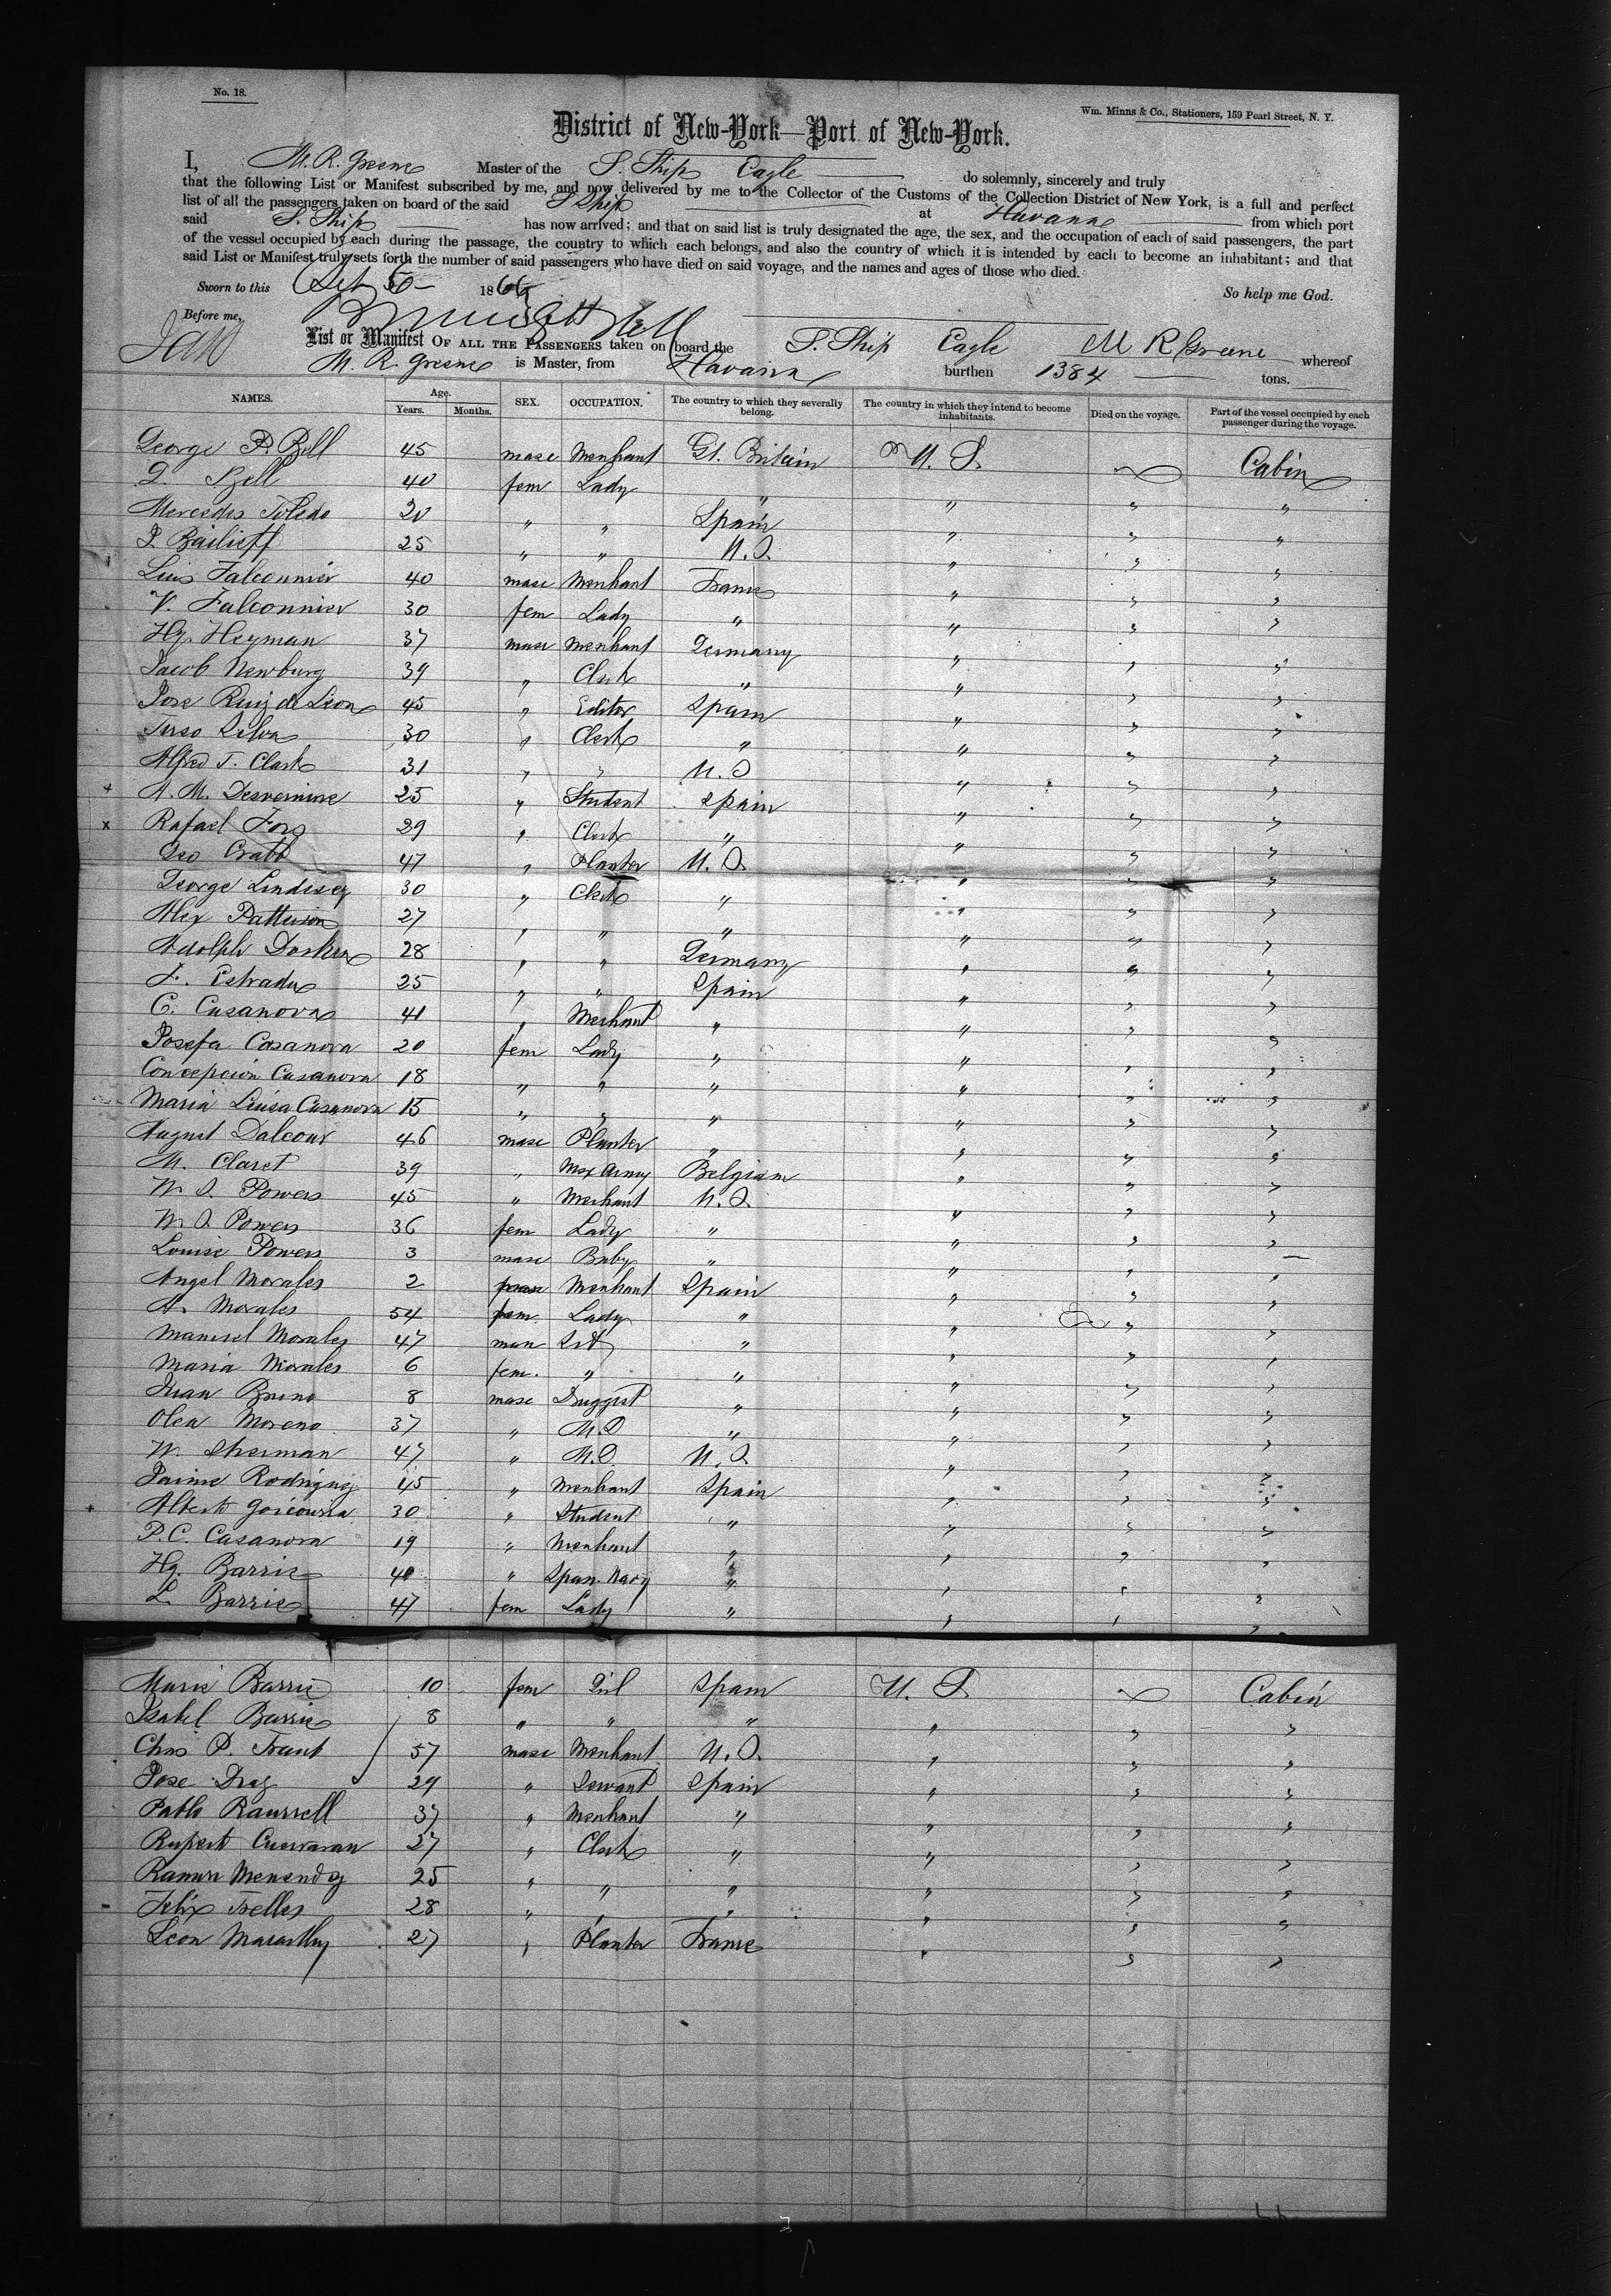 No. 18.
Wm. Minns & Co., Stationers, 159 Pearl Street, N. Y.
District of New-York—Port of New-York.
I, M. R. Greene Master of the S. Ship Eagle do solemnly, sincerely and truly
that the following List or Manifest subscribed by me, and now delivered by me to the Collector of the Customs of the Collection District of New York, is a full and perfect
list of all the passengers taken on board of the said S Ship at Havana from which port
said S. Ship has now arrived; and that on said list is truly designated the age, the sex, and the occupation of each of said passengers, the part
of the vessel occupied by each during the passage, the country to which each belongs, and also the country of which it is intended by each to become an inhabitant; and that
said List or Manifest truly sets forth the number of said passengers who have died on said voyage, and the names and ages of those who died.
So help me God.
Sworn to this 5 1866
Before me,
List or Manifest OF ALL THE PASSENGERS taken on board the S. Ship Eagle M R Greene whereof
M. R. Greene is Master, from Havana burthen 1384 tons.
NAMES. Age. Years. Months. SEX. OCCUPATION. The country to which they severally belong. The country in which they intend to become inhabitants. Died on the voyage. Part of the vessel occupied by each passenger during the voyage.
George P. Bell 45 masc Merchant Gt. Britain U. S. Cabin
Bell 40 fem Lady " " " "
Mercedes Toledo 20 " " Spain " " "
Bailieff 25 " " U.S. " " "
Luis Falconnier 40 masc Merchant France " " "
V. Falconnier 30 fem Lady " " " "
Hy. Heyman 37 masc Merchant Germany " " "
Jacob Newburg 39 " Clerk " " " "
Jose Ruiz de Leon 45 " Editor Spain " " "
Tirso Silva 30 " Clerk " " " "
Alfred J. Clark 31 " " U.S " " "
+ A. M. Desvernine 25 " Student Spain " " "
x Rafael Fors 29 " Clerk " " " "
Geo Crabb 47 " Planter U.S. " " "
George Lindesey 30 " Clerk " " " "
Alex Patterson 27 " " " " " "
Adolph 28 " " Germany " " "
F. Estrada 25 " " Spain " " "
C. Casanova 41 " Merchant " " " "
Josefa Casanova 20 fem Lady " " " "
Concepcion Casanova 18 " " " " " "
Maria Luisa Casanova 15 " " " " " "
August Dalcour 46 masc Planter " " " "
M. Claret 39 " Mex Army Belgium " " "
W. S. Powers 45 " Merchant U.S. " " "
W. S. Powers 36 fem Lady " " " "
Louise Powers 3 masc Baby " " "
Angel Morales 2 masc Merchant Spain " " "
A. Morales 54 fem. Lady " " " "
Manuel Morales 47 man " " " "
Maria Morales 6 fem. " " " " "
Juan Bruno 8 masc Druggist " " " "
Olea Moreno 37 " M.D " " " "
W. Sherman 47 " M.D. U.S. " " "
Jaime Rodriguez 45 " Merchant Spain " " "
+ Alberto Goicouria 30 " Student " " " "
P. C. Casanova 19 " Merchant " " " "
Hy. Barrie 40 " Span. Navy " " " "
L. Barrie 47 fem Lady " " " "
Marie Barrie 10 fem Girl Spain U. S. Cabin
Isabel Barrie 8 " " " " " "
Chas P. Traub 57 masc Merchant U.S. " " "
Jose 29 " Servant Spain " " "
Pablo Raurrell 37 " Merchant " " " "
Ruperto 27 " Clerk " " " "
Ramon Menendez 25 " " " " " "
Felix Telles 28 " " " " " "
Leon Macarthy 27 " Planter France " " "